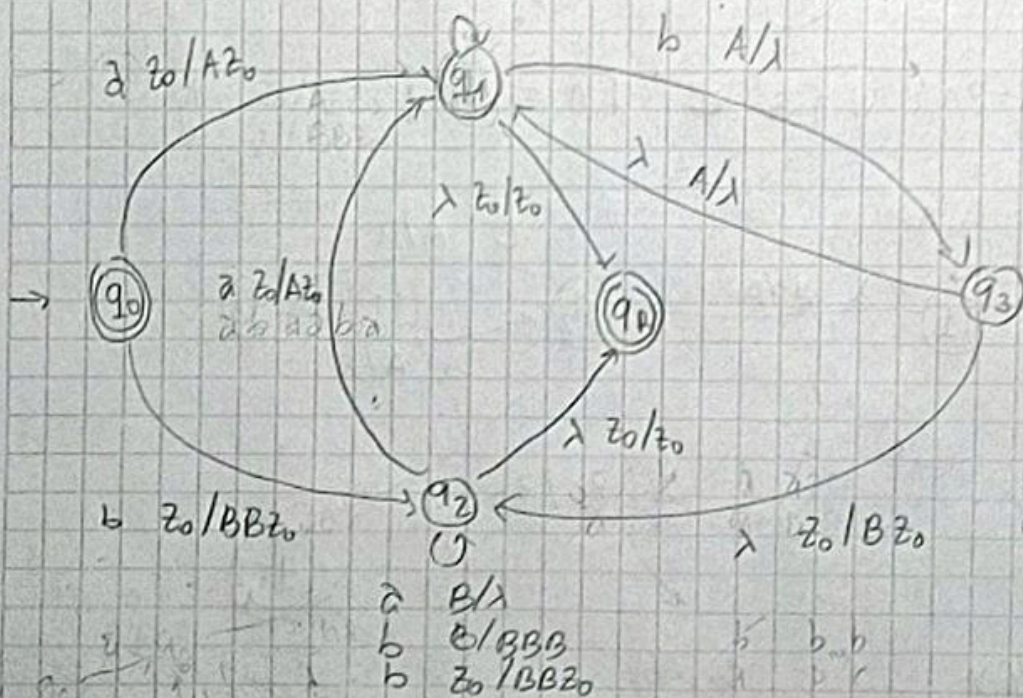 b A/λ
a z₀/Az₀
q₁
λ A/λ
λ z₀/z₀
q₀
a z₀/Az₀
q₃
λ z₀/z₀
q₂
b z₀/BBz₀
λ z₀/Bz₀
a B/λ
b B/BBB
b z₀/BBz₀